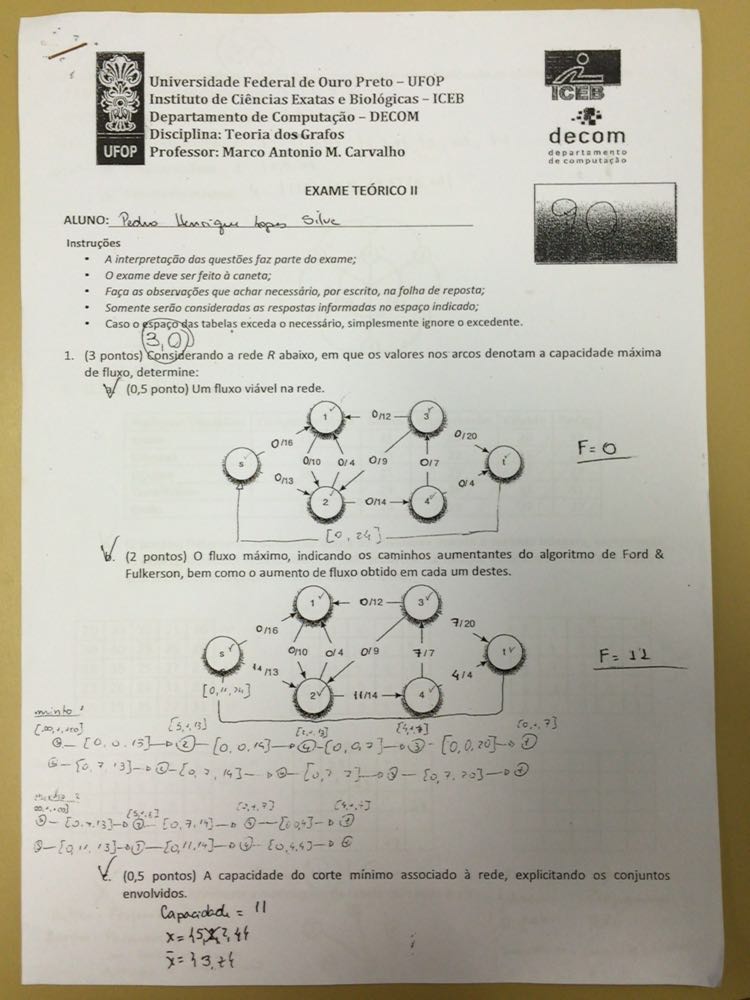 Universidade Federal de Ouro Preto – UFOP
Instituto de Ciências Exatas e Biológicas – ICEB
Departamento de Computação – DECOM
Disciplina: Teoria dos Grafos
UFOP Professor: Marco Antonio M. Carvalho
ICEB
decom
departamento
de computação
EXAME TEÓRICO II
ALUNO: Pedro Henrique Lopes Silva
90
Instruções
• A interpretação das questões faz parte do exame;
• O exame deve ser feito à caneta;
• Faça as observações que achar necessário, por escrito, na folha de reposta;
• Somente serão consideradas as respostas informadas no espaço indicado;
• Caso o espaço das tabelas exceda o necessário, simplesmente ignore o excedente.
3,0
1. (3 pontos) Considerando a rede R abaixo, em que os valores nos arcos denotam a capacidade máxima
de fluxo, determine:
a. (0,5 ponto) Um fluxo viável na rede.
1 0/12 3
0/16 0/20
s 0/10 0/4 0/9 0/7 t
F= 0
0/13 0/4
2 0/14 4
[0, 24]
b. (2 pontos) O fluxo máximo, indicando os caminhos aumentantes do algoritmo de Ford &
Fulkerson, bem como o aumento de fluxo obtido em cada um destes.
1 0/12 3
0/16 7/20
s 0/10 0/4 0/9 7/7 t
F= 11
11/13 4/4
2 11/14 4
[0,11,24]
[0, 0, 14] [0, 0, 7] [0, 0, 20]
[0, 7, 13] [0, 7, 14] [0, 7, 20]
[0, 7, 14]
[0, 11, 13] [0, 11, 14] [0, 4, 4]
c. (0,5 pontos) A capacidade do corte mínimo associado à rede, explicitando os conjuntos
envolvidos.
Capacidade = 11